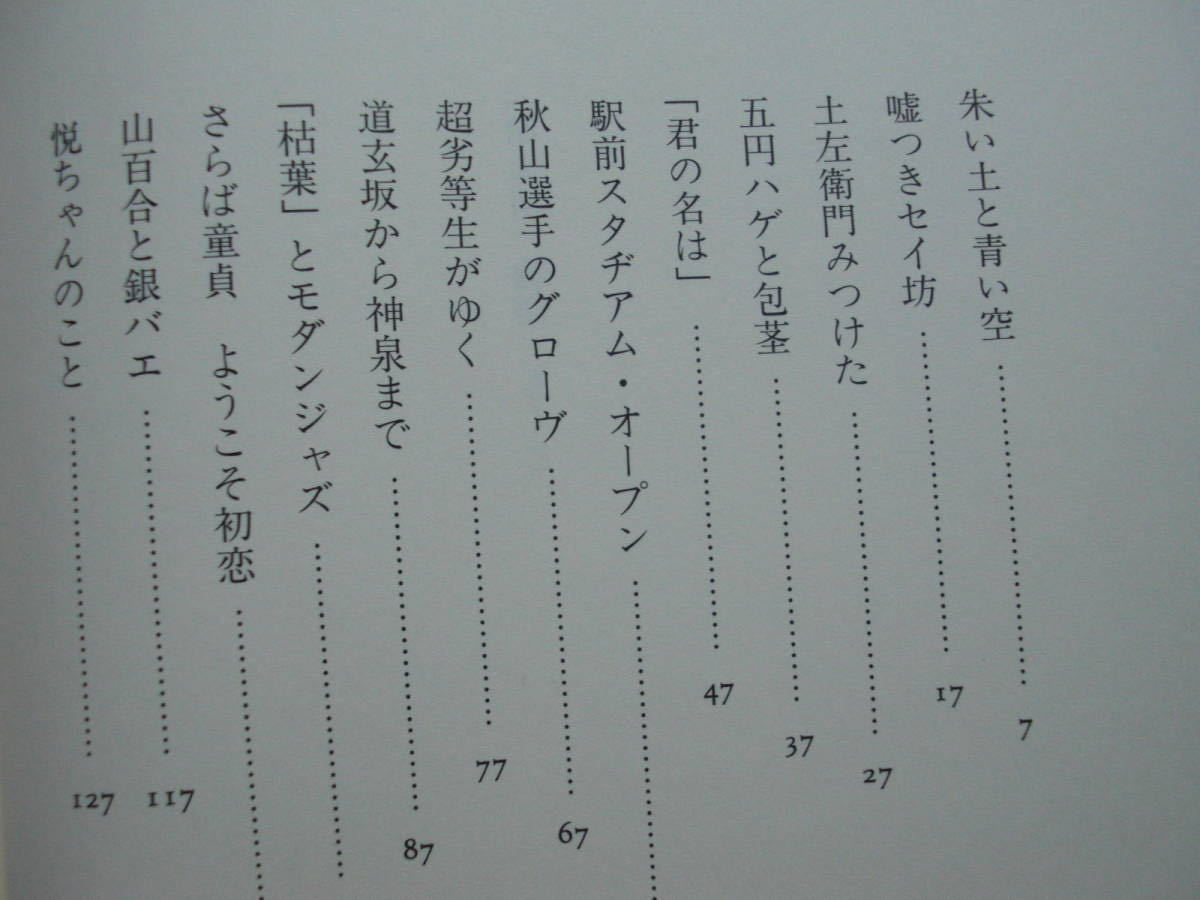 朱い土と青い空……………………7
嘘つきセイ坊……………………17
土左衛門みつけた……………………27
五円ハゲと包茎……………………37
「君の名は」……………………47
駅前スタヂアム・オープン……………………
秋山選手のグローヴ……………………67
超劣等生がゆく……………………77
道玄坂から神泉まで……………………87
「枯葉」とモダンジャズ……………………
さらば童貞　ようこそ初恋……………………
山百合と銀バエ……………………117
悦ちゃんのこと……………………127